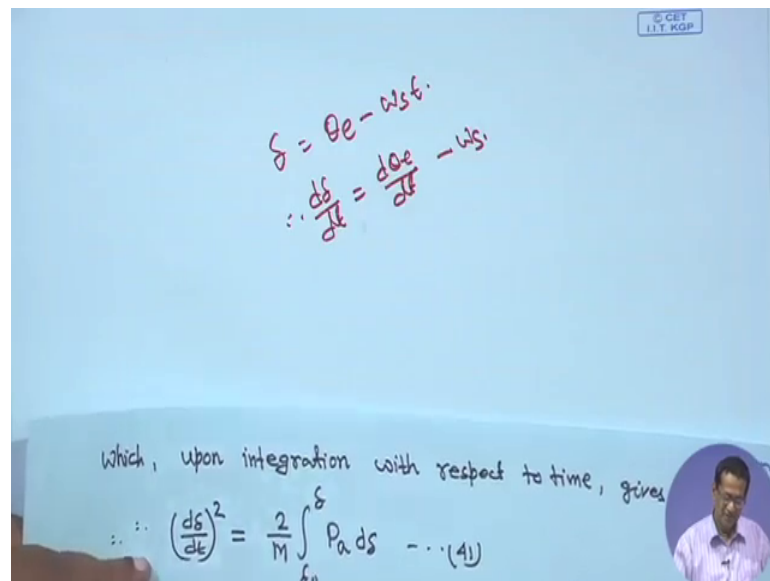 © CET
I.I.T. KGP
δ = θe - ωst.
∴ dδ/dt = dθe/dt - ωs.
which, upon integration with respect to time, gives
∴ ∴ (dδ/dt)² = 2/M ∫δ₀^δ Pa dδ --- (41)